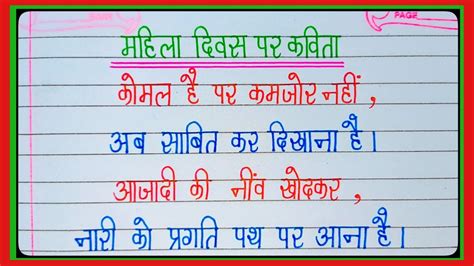 PAGE
महिला दिवस पर कविता
कोमल है पर कमजोर नहीं ,
अब साबित कर दिखाना है ।
आजादी की नींव खोदकर ,
नारी को प्रगति पथ पर आना है ।